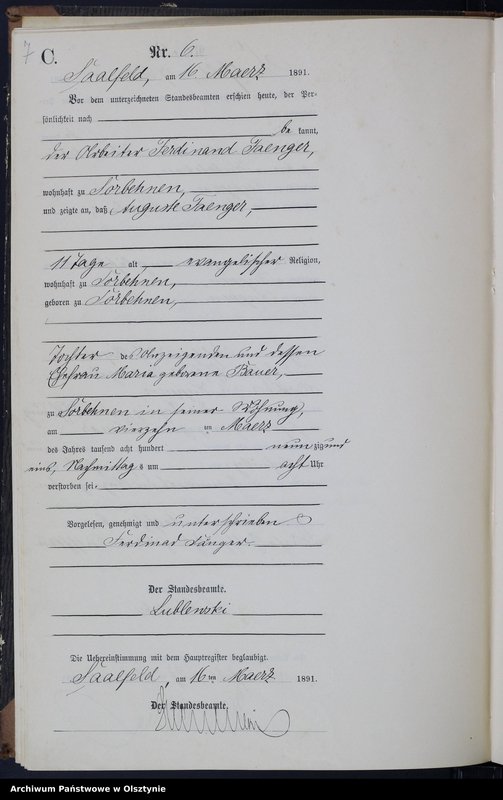 7
C.
Nr. 6.
Saalfeld, am 16 Maerz 1891.
Vor dem unterzeichneten Standesbeamten erschien heute, der Per-
sönlichkeit nach
be kannt,
der Arbeiter Ferdinand Faenger,
wohnhaft zu Sorbehnen,
und zeigte an, daß Auguste Faenger,
11 Tage alt, evangelischer Religion,
wohnhaft zu Sorbehnen,
geboren zu Sorbehnen,
Tochter des Anzeigenden und dessen
Ehefrau Maria geborene Bauer,
zu Sorbehnen in seiner Wohnung,
am vierzehn ten Maerz
des Jahres tausend acht hundert neun zig und
eins, Nachmittag s um acht Uhr
verstorben sei.
Vorgelesen, genehmigt und unterschrieben
Ferdinad Fänger
Der Standesbeamte.
Lublewski
Die Uebereinstimmung mit dem Hauptregister beglaubigt.
Saalfeld, am 16 ten Maerz 1891.
Der Standesbeamte.
Archiwum Państwowe w Olsztynie